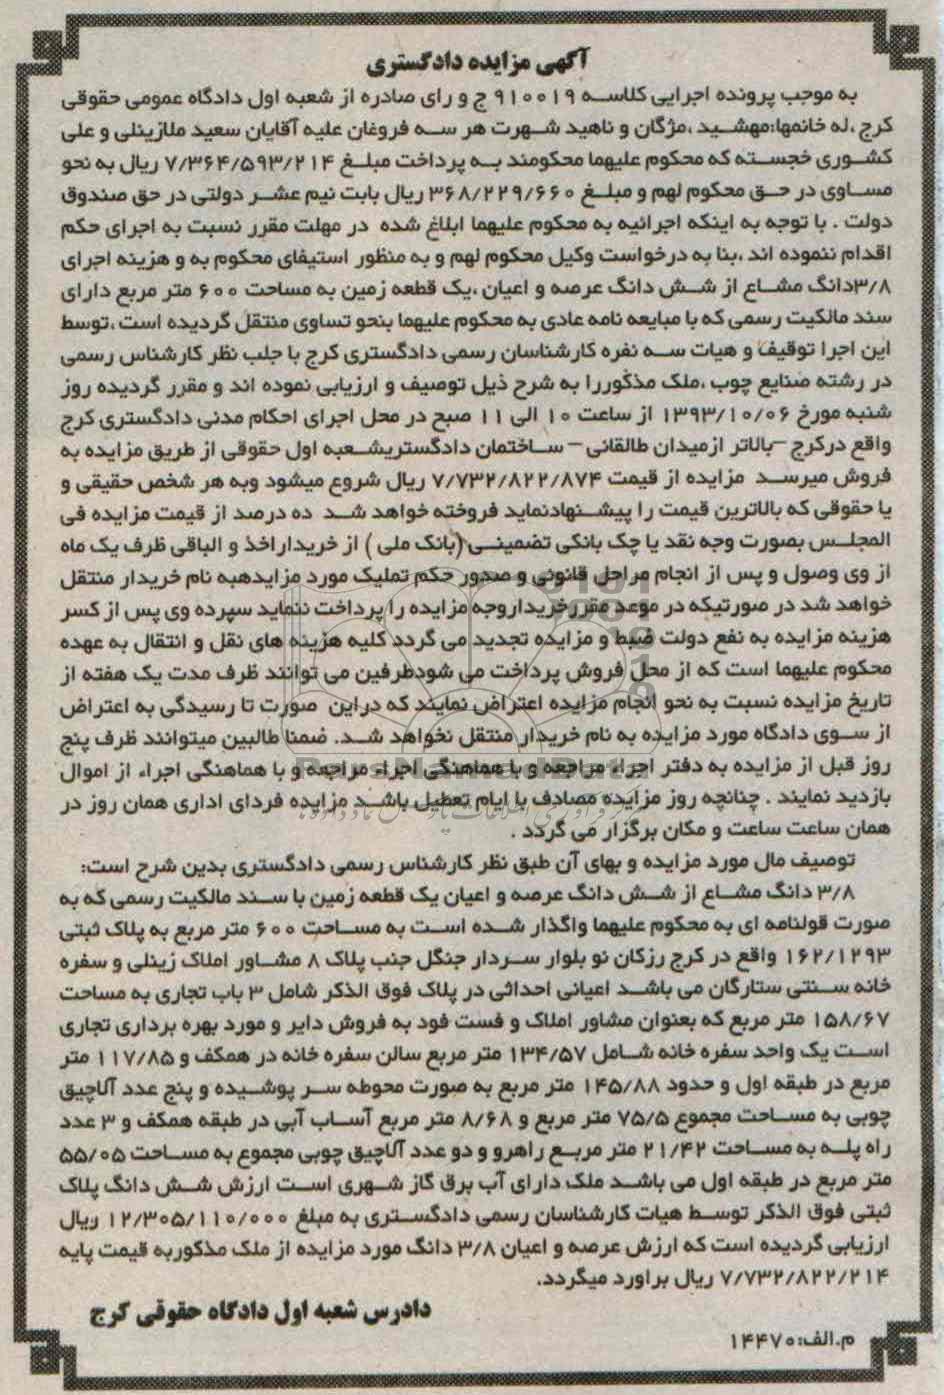 آگهی مزایده دادگستری
به موجب پرونده اجرایی کلاسه ۹۱۰۰۱۹ ج و رای صادره از شعبه اول دادگاه عمومی حقوقی
کرج ،له خانمها:مهشید ،مژگان و ناهید شهرت هر سه فروغان علیه آقایان سعید ملازینلی و علی
کشوری خجسته که محکوم علیهما محکومند به پرداخت مبلغ ۷/۳۶۴/۵۹۳/۲۱۴ ریال به نحو
مساوی در حق محکوم لهم و مبلغ ۳۶۸/۲۲۹/۶۶۰ ریال بابت نیم عشر دولتی در حق صندوق
دولت . با توجه به اینکه اجرائیه به محکوم علیهما ابلاغ شده در مهلت مقرر نسبت به اجرای حکم
اقدام ننموده اند ،بنا به درخواست وکیل محکوم لهم و به منظور استیفای محکوم به و هزینه اجرای
۳/۸دانگ مشاع از شش دانگ عرصه و اعیان ،یک قطعه زمین به مساحت ۶۰۰ متر مربع دارای
سند مالکیت رسمی که با مبایعه نامه عادی به محکوم علیهما بنحو تساوی منتقل گردیده است ،توسط
این اجرا توقیف و هیات سه نفره کارشناسان رسمی دادگستری کرج با جلب نظر کارشناس رسمی
در رشته صنایع چوب ،ملک مذکوررا به شرح ذیل توصیف و ارزیابی نموده اند و مقرر گردیده روز
شنبه مورخ ۱۳۹۳/۱۰/۰۶ از ساعت ۱۰ الی ۱۱ صبح در محل اجرای احکام مدنی دادگستری کرج
واقع درکرج –بالاتر ازمیدان طالقانی– ساختمان دادگستریشعبه اول حقوقی از طریق مزایده به
فروش میرسد مزایده از قیمت ۷/۷۳۲/۸۲۲/۸۷۴ ریال شروع میشود وبه هر شخص حقیقی و
یا حقوقی که بالاترین قیمت را پیشنهادنماید فروخته خواهد شد ده درصد از قیمت مزایده فی
المجلس بصورت وجه نقد یا چک بانکی تضمینی (بانک ملی ) از خریداراخذ و الباقی ظرف یک ماه
از وی وصول و پس از انجام مراحل قانونی و صدور حکم تملیک مورد مزایدهبه نام خریدار منتقل
خواهد شد در صورتیکه در موعد مقررخریداروجه مزایده را پرداخت ننماید سپرده وی پس از کسر
هزینه مزایده به نفع دولت ضبط و مزایده تجدید می گردد کلیه هزینه های نقل و انتقال به عهده
محکوم علیهما است که از محل فروش پرداخت می شودطرفین می توانند ظرف مدت یک هفته از
تاریخ مزایده نسبت به نحو انجام مزایده اعتراض نمایند که دراین صورت تا رسیدگی به اعتراض
از سوی دادگاه مورد مزایده به نام خریدار منتقل نخواهد شد. ضمنا طالبین میتوانند ظرف پنج
روز قبل از مزایده به دفتر اجراء مراجعه و با هماهنگی اجراء مراجعه و با هماهنگی اجراء از اموال
بازدید نمایند . چنانچه روز مزایده مصادف با ایام تعطیل باشد مزایده فردای اداری همان روز در
همان ساعت ساعت و مکان برگزار می گردد .
توصیف مال مورد مزایده و بهای آن طبق نظر کارشناس رسمی دادگستری بدین شرح است:
۳/۸ دانگ مشاع از شش دانگ عرصه و اعیان یک قطعه زمین با سند مالکیت رسمی که به
صورت قولنامه ای به محکوم علیهما واگذار شده است به مساحت ۶۰۰ متر مربع به پلاک ثبتی
۱۶۲/۱۲۹۳ واقع در کرج رزکان نو بلوار سردار جنگل جنب پلاک ۸ مشاور املاک زینلی و سفره
خانه سنتی ستارگان می باشد اعیانی احداثی در پلاک فوق الذکر شامل ۳ باب تجاری به مساحت
۱۵۸/۶۷ متر مربع که بعنوان مشاور املاک و فست فود به فروش دایر و مورد بهره برداری تجاری
است یک واحد سفره خانه شامل ۱۳۴/۵۷ متر مربع سالن سفره خانه در همکف و ۱۱۷/۸۵ متر
مربع در طبقه اول و حدود ۱۴۵/۸۸ متر مربع به صورت محوطه سر پوشیده و پنج عدد آلاچیق
چوبی به مساحت مجموع ۷۵/۵ متر مربع و ۸/۶۸ متر مربع آساب آبی در طبقه همکف و ۳ عدد
راه پله به مساحت ۲۱/۴۲ متر مربع راهرو و دو عدد آلاچیق چوبی مجموع به مساحت ۵۵/۰۵
متر مربع در طبقه اول می باشد ملک دارای آب برق گاز شهری است ارزش شش دانگ پلاک
ثبتی فوق الذکر توسط هیات کارشناسان رسمی دادگستری به مبلغ ۱۲/۳۰۵/۱۱۰/۰۰۰ ریال
ارزیابی گردیده است که ارزش عرصه و اعیان ۳/۸ دانگ مورد مزایده از ملک مذکوربه قیمت پایه
۷/۷۳۲/۸۲۲/۲۱۴ ریال براورد میگردد.
دادرس شعبه اول دادگاه حقوقی کرج
م.الف:۱۴۴۷۰